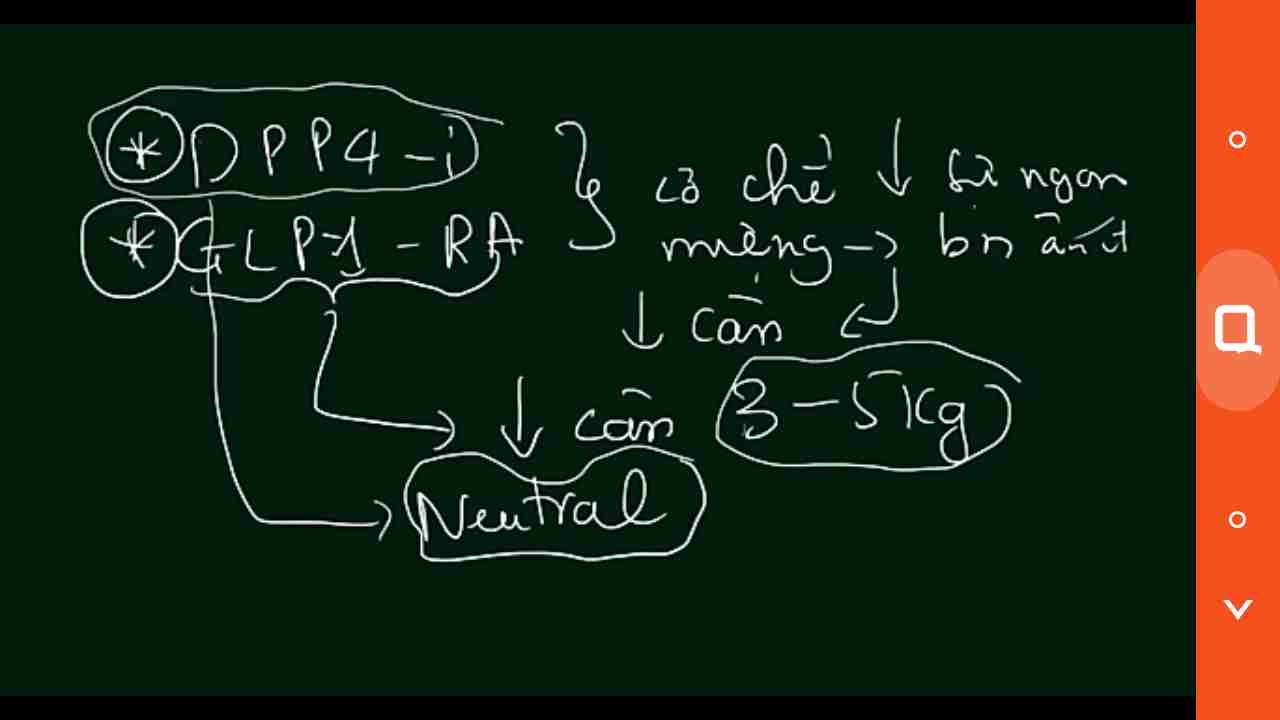 * DPP4-i
* GLP1-RA
cơ chế ↓ sự ngon
miệng → bn ăn ít
↓ cân
↓ cân 3-5 Kg
Neutral